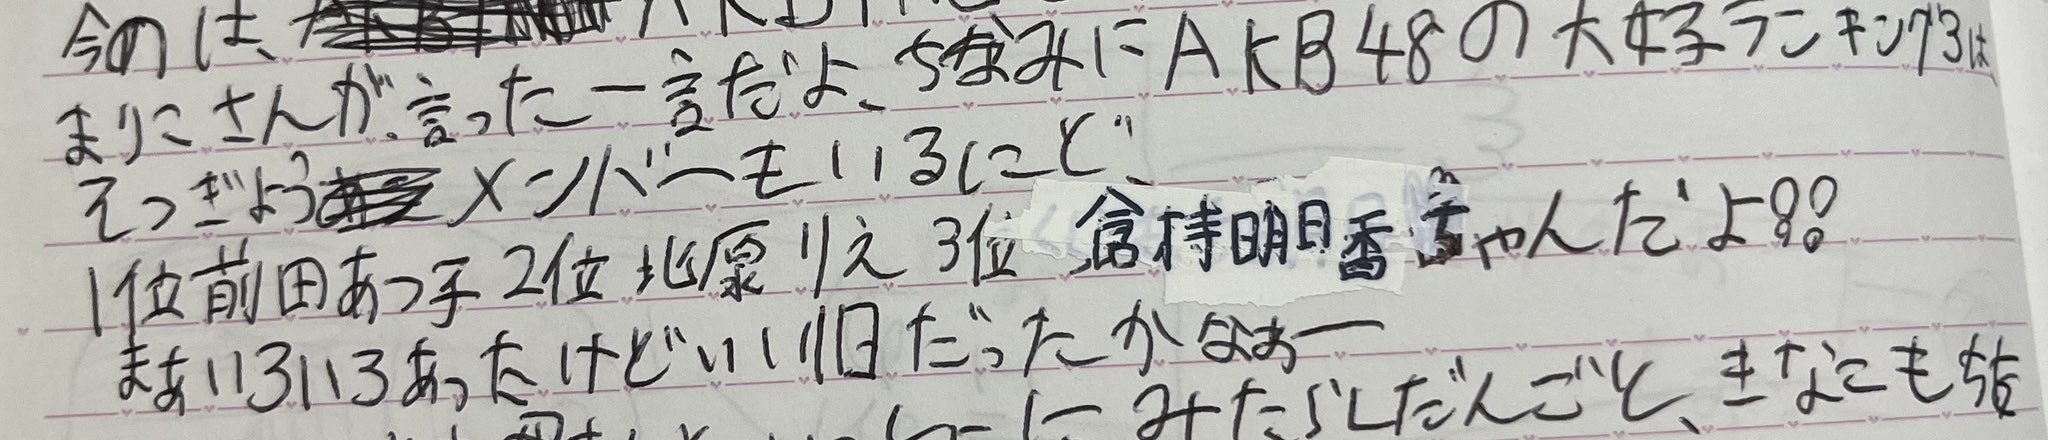 今のは、AKB
まりこさんが、言った一言だよ、ちなみにAKB48の大好ランキング3は
そつぎょうメンバーもいるけど、
1位前田あつ子2位北原りえ3位倉持明日香ちゃんだよ!!
まぁいろいろあったけどいい1日だったかなぁー
みたらしだんごと、きなこもち